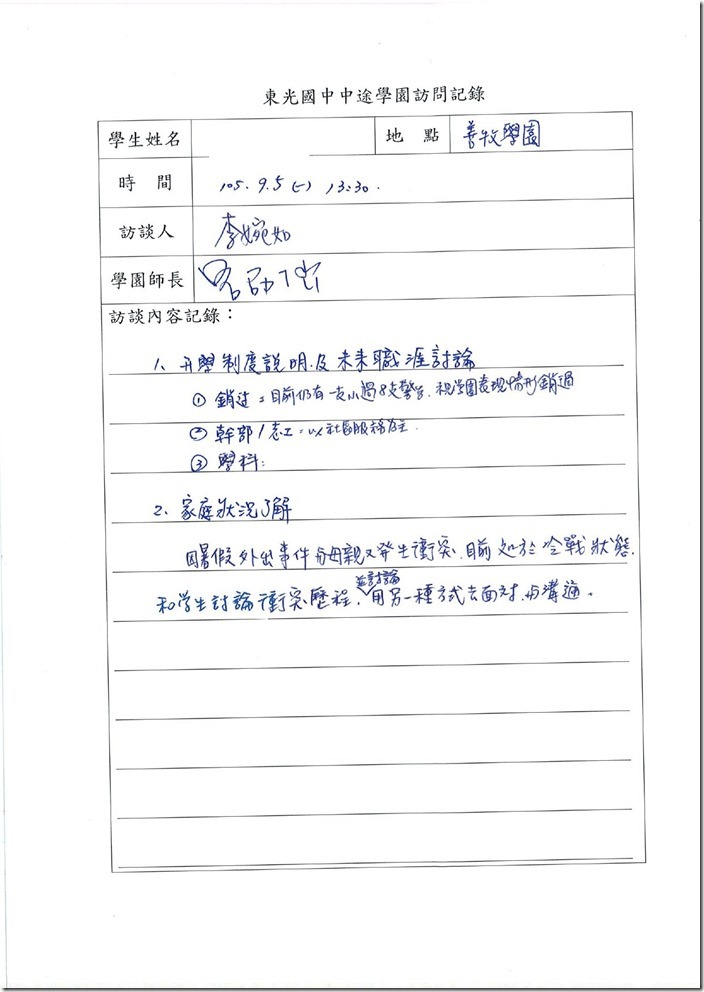 東光國中中途學園訪問記錄
學生姓名 地點 善牧學園
時間 105.9.5(一) 13:30.
訪談人 李婉如
學園師長
訪談內容記錄：
1、升學制度說明及未來職涯討論
① 銷過：目前仍有一支小過8支警告，視學園表現情形銷過
② 幹部/志工：以社區服務為主.
③ 學科：
2、家庭狀況了解
因暑假外出事件與母親又發生衝突，目前處於冷戰狀態，
和学生討論衝突歷程，並討論用另一種方式去面对与溝通。